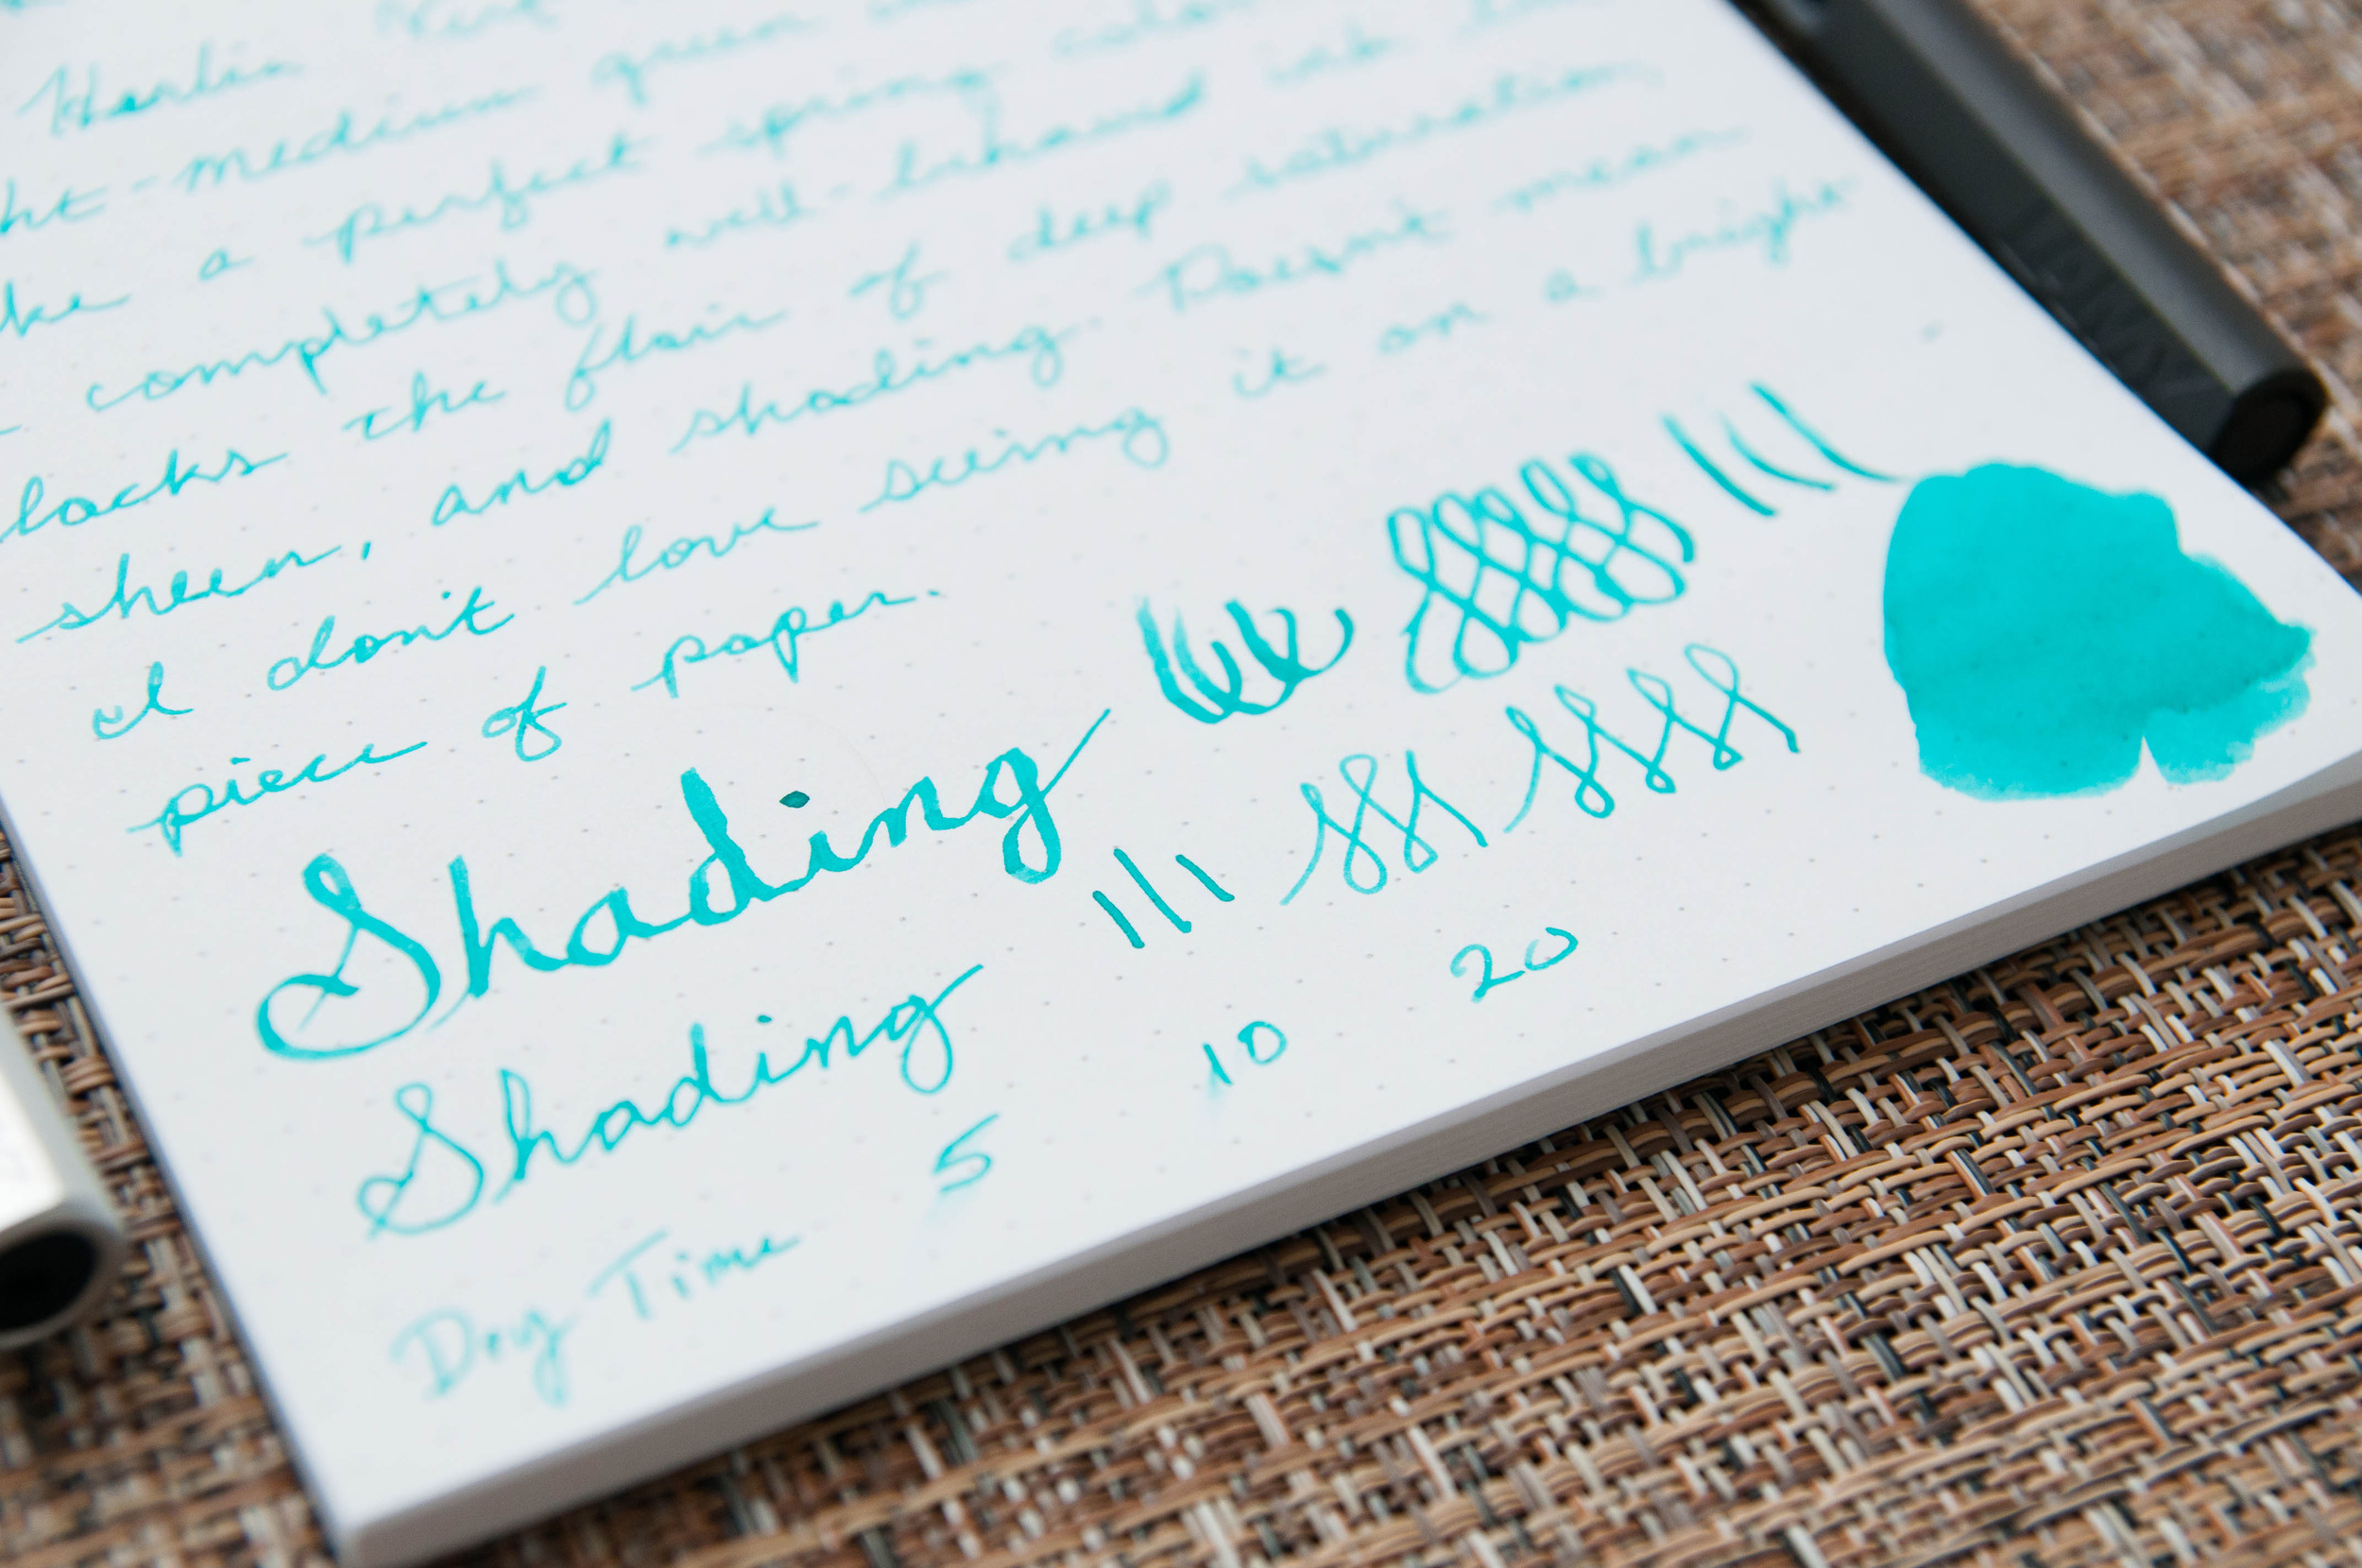 Herbin Vert
ht-medium green
ke a perfect spring color
completely well-behaved ink
lacks the flair of deep saturation,
sheen, and shading. Doesn't mean
I don't love seeing it on a bright
piece of paper.
Shading
Shading
Dry Time 5 10 20
LAMY